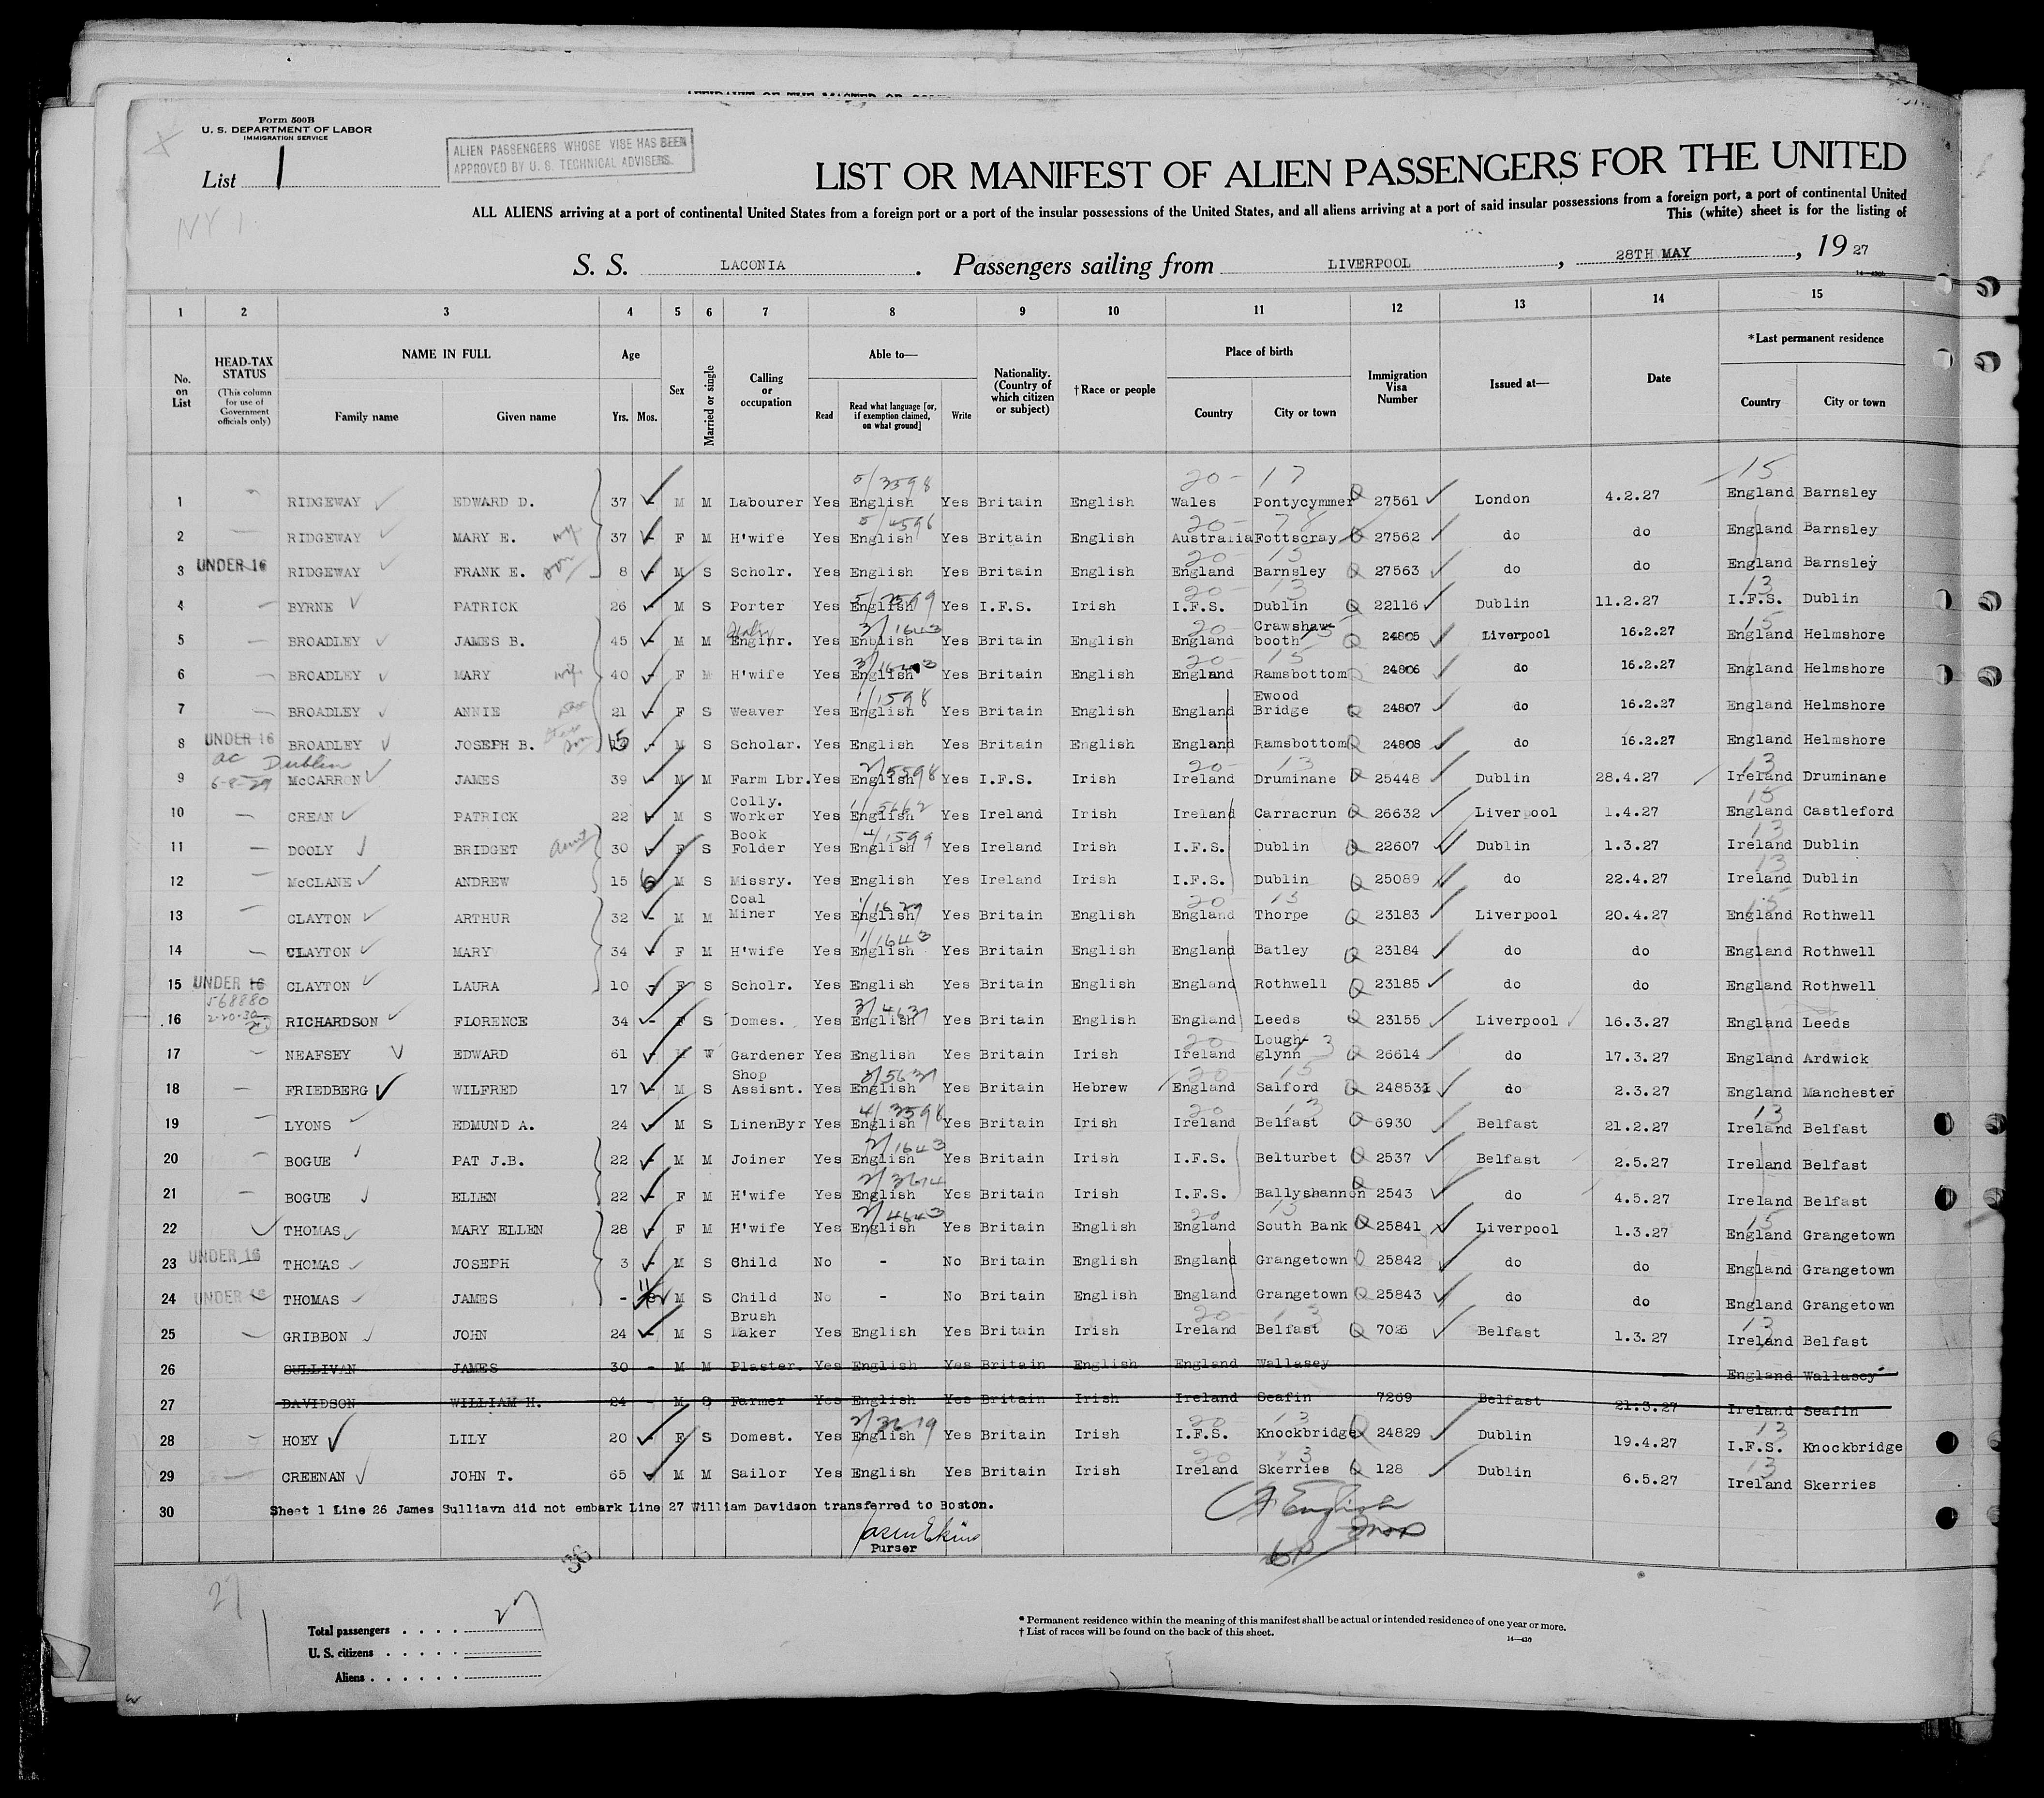 AFFIDAVIT OF THE MASTER OR
Form 500B
U. S. DEPARTMENT OF LABOR
IMMIGRATION SERVICE
List 1
ALIEN PASSENGERS WHOSE VISE HAS BEEN
APPROVED BY U. S. TECHNICAL ADVISERS.
NY 1
LIST OR MANIFEST OF ALIEN PASSENGERS FOR THE UNITED
ALL ALIENS arriving at a port of continental United States from a foreign port or a port of the insular possessions of the United States, and all aliens arriving at a port of said insular possessions from a foreign port, a port of continental United
This (white) sheet is for the listing of
S. S. LACONIA . Passengers sailing from LIVERPOOL , 28TH MAY , 19 27
1 2 3 4 5 6 7 8 9 10 11 12 13 14 15
No. on List
HEAD-TAX STATUS (This column for use of Government officials only)
NAME IN FULL Family name Given name
Age Yrs. Mos.
Sex
Married or single
Calling or occupation
Able to— Read Read what language [or, if exemption claimed, on what ground] Write
Nationality. (Country of which citizen or subject)
†Race or people
Place of birth Country City or town
Immigration Visa Number
Issued at—
Date
*Last permanent residence Country City or town
5/3598 20- 17 15
1 RIDGEWAY EDWARD D. 37 M M Labourer Yes English Yes Britain English Wales Pontycymmer 27561 London 4.2.27 England Barnsley
5/4596 20- 78
2 RIDGEWAY MARY E. wife 37 F M H'wife Yes English Yes Britain English Australia Fottscray 27562 do do England Barnsley
20- 15
3 UNDER 16 RIDGEWAY FRANK E. son 8 M S Scholr. Yes English Yes Britain English England Barnsley 27563 do do England Barnsley
20- 13 13
4 BYRNE PATRICK 26 - M S Porter Yes English Yes I.F.S. Irish I.F.S. Dublin 22116 Dublin 11.2.27 I.F.S. Dublin
3/1643 20- 15 15
5 BROADLEY JAMES B. 45 - M M Enginr. Yes Enblish Yes Britain English England Crawshaw-booth 24805 Liverpool 16.2.27 England Helmshore
3/1643 20- 15
6 BROADLEY MARY wife 40 - F M H'wife Yes English Yes Britain English England Ramsbottom 24806 do 16.2.27 England Helmshore
1/1598
7 BROADLEY ANNIE 21 - F S Weaver Yes English Yes Britain English England Ewood Bridge 24807 do 16.2.27 England Helmshore
8 UNDER 16 BROADLEY JOSEPH B. son 15 - M S Scholar. Yes English Yes Britain English England Ramsbottom 24808 do 16.2.27 England Helmshore
ac Dublin 2/5598 20- 13 13
9 6-8-29 McCARRON JAMES 39 - M M Farm Lbr. Yes English Yes I.F.S. Irish Ireland Druminane 25448 Dublin 28.4.27 Ireland Druminane
1/5662 15
10 CREAN PATRICK 22 - M S Colly. Worker Yes English Yes Ireland Irish Ireland Carracrun 26632 Liverpool 1.4.27 England Castleford
4/1599 13
11 DOOLY BRIDGET aunt 30 - F S Book Folder Yes English Yes Ireland Irish I.F.S. Dublin 22607 Dublin 1.3.27 Ireland Dublin
13
12 McCLANE ANDREW 15 6 M S Missry. Yes English Yes Ireland Irish I.F.S. Dublin 25089 do 22.4.27 Ireland Dublin
1/1629 20- 15 15
13 CLAYTON ARTHUR 32 - M M Coal Miner Yes English Yes Britain English England Thorpe 23183 Liverpool 20.4.27 England Rothwell
1/1643
14 CLAYTON MARY 34 - F M H'wife Yes English Yes Britain English England Batley 23184 do do England Rothwell
15 UNDER 16 CLAYTON LAURA 10 - F S Scholr. Yes English Yes Britain English England Rothwell 23185 do do England Rothwell
568880 2-20-30 3/4637
16 RICHARDSON FLORENCE 34 - F S Domes. Yes English Yes Britain English England Leeds 23155 Liverpool 16.3.27 England Leeds
20- 13
17 NEAFSEY EDWARD 61 - M W Gardener Yes English Yes Britain Irish Ireland Lough-glynn 26614 do 17.3.27 England Ardwick
3/5637 20- 15
18 FRIEDBERG WILFRED 17 - M S Shop Assisnt. Yes English Yes Britain Hebrew England Salford 24853 do 2.3.27 England Manchester
4/3598 20 13 13
19 LYONS EDMUND A. 24 M S LinenByr Yes English Yes Britain Irish Ireland Belfast 6930 Belfast 21.2.27 Ireland Belfast
2/1643
20 BOGUE PAT J.B. 22 - M M Joiner Yes English Yes Britain Irish I.F.S. Belturbet 2537 Belfast 2.5.27 Ireland Belfast
2/3614
21 BOGUE ELLEN 22 - F M H'wife Yes English Yes Britain Irish I.F.S. Ballyshannon 2543 do 4.5.27 Ireland Belfast
2/4643 20 15 15
22 THOMAS MARY ELLEN 28 - F M H'wife Yes English Yes Britain English England South Bank 25841 Liverpool 1.3.27 England Grangetown
23 UNDER 16 THOMAS JOSEPH 3 - M S Child No - No Britain English England Grangetown 25842 do do England Grangetown
24 UNDER 16 THOMAS JAMES - 11 M S Child No - No Britain English England Grangetown 25843 do do England Grangetown
20- 13 13
25 GRIBBON JOHN 24 - M S Brush Maker Yes English Yes Britain Irish Ireland Belfast 7026 Belfast 1.3.27 Ireland Belfast
26 SULLIVAN JAMES 30 - M M Plaster. Yes English Yes Britain English England Wallasey England Wallasey
27 DAVIDSON WILLIAM H. 24 - M S Farmer Yes English Yes Britain Irish Ireland Seafin 7269 Belfast 21.3.27 Ireland Seafin
2/3619 20 13 13
28 HOEY LILY 20 - F S Domest. Yes English Yes Britain Irish I.F.S. Knockbridge 24829 Dublin 19.4.27 I.F.S. Knockbridge
20 13 13
29 CREENAN JOHN T. 65 M M Sailor Yes English Yes Britain Irish Ireland Skerries 128 Dublin 6.5.27 Ireland Skerries
30 Sheet 1 Line 26 James Sulliavn did not embark Line 27 William Davidson transferred to Boston.
Purser
36
27
Total passengers . . . . 27
U. S. citizens . . . . .
Aliens . . . . . .
* Permanent residence within the meaning of this manifest shall be actual or intended residence of one year or more.
† List of races will be found on the back of this sheet.
14—430